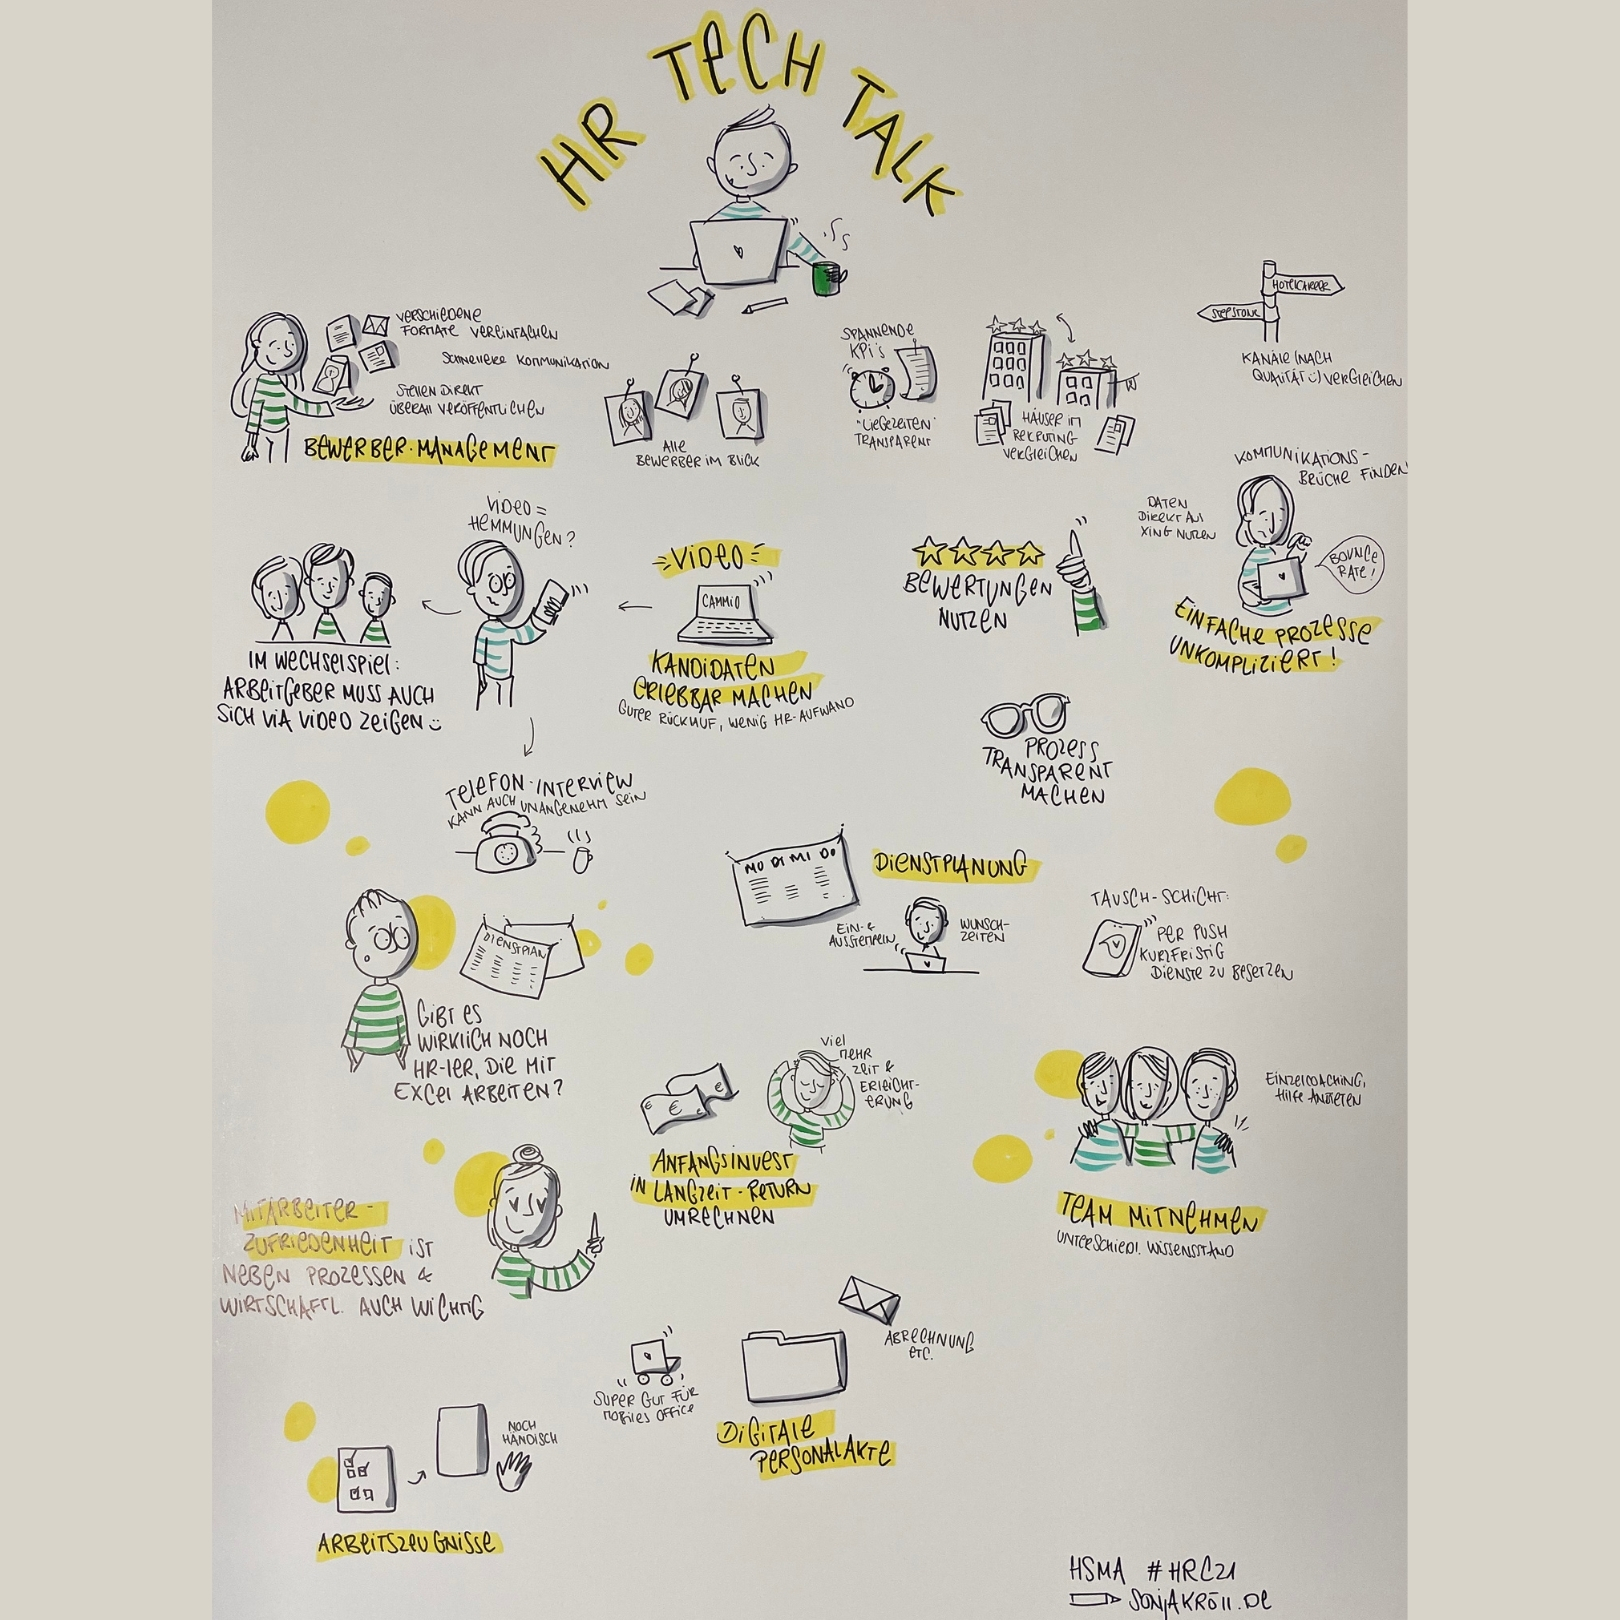 HR TECH TALK
VERSCHIEDENE
FORMATE VEREINFACHEN
SCHNELLERE KOMMUNIKATION
STELLEN DIREKT
ÜBERALL VERÖFFENTLICHEN
BEWERBER-MANAGEMENT
ALLE
BEWERBER IM BLICK
SPANNENDE
KPI's
"LIEGEZEITEN"
TRANSPARENT
HÄUSER IM
REKRUTING
VERGLEICHEN
HOTELCAREER
STEPSTONE
KANÄLE (NACH
QUALITÄT :) VERGLEICHEN
KOMMUNIKATIONS-
BRÜCHE FINDEN
DATEN
DIREKT AUS
XING NUTZEN
BOUNCE
RATE!
EINFACHE PROZESSE
UNKOMPLIZIERT!
VIDEO =
HEMMUNGEN?
VIDEO
CAMMIO
KANDIDATEN
ERLEBBAR MACHEN
GUTER RÜCKLAUF, WENIG HR-AUFWAND
BEWERTUNGEN
NUTZEN
IM WECHSELSPIEL:
ARBEITGEBER MUSS AUCH
SICH VIA VIDEO ZEIGEN :)
PROZESS
TRANSPARENT
MACHEN
TELEFON-INTERVIEW
KANN AUCH UNANGENEHM SEIN
MO DI MI DO
DIENSTPLANUNG
EIN- &
AUSSTEMPELN
WUNSCH-
ZEITEN
TAUSCH-SCHICHT:
PER PUSH
KURZFRISTIG
DIENSTE ZU BESETZEN
DIENSTPLAN
GIBT ES
WIRKLICH NOCH
HR-LER, DIE MIT
EXCEL ARBEITEN?
€ € €
VIEL
MEHR
ZEIT &
ERLEICHT-
ERUNG
ANFANGSINVEST
IN LANGZEIT-RETURN
UMRECHNEN
EINZELCOACHING,
HILFE ANBIETEN
TEAM MITNEHMEN
UNTERSCHIEDL. WISSENSSTAND
MITARBEITER-
ZUFRIEDENHEIT IST
NEBEN PROZESSEN &
WIRTSCHAFTL. AUCH WICHTIG
SUPER GUT FÜR
MOBILES OFFICE
ABRECHNUNG
ETC.
DIGITALE
PERSONALAKTE
NOCH
HÄNDISCH
ARBEITSZEUGNISSE
HSMA #HRC21
SONJAKRÖLL.DE